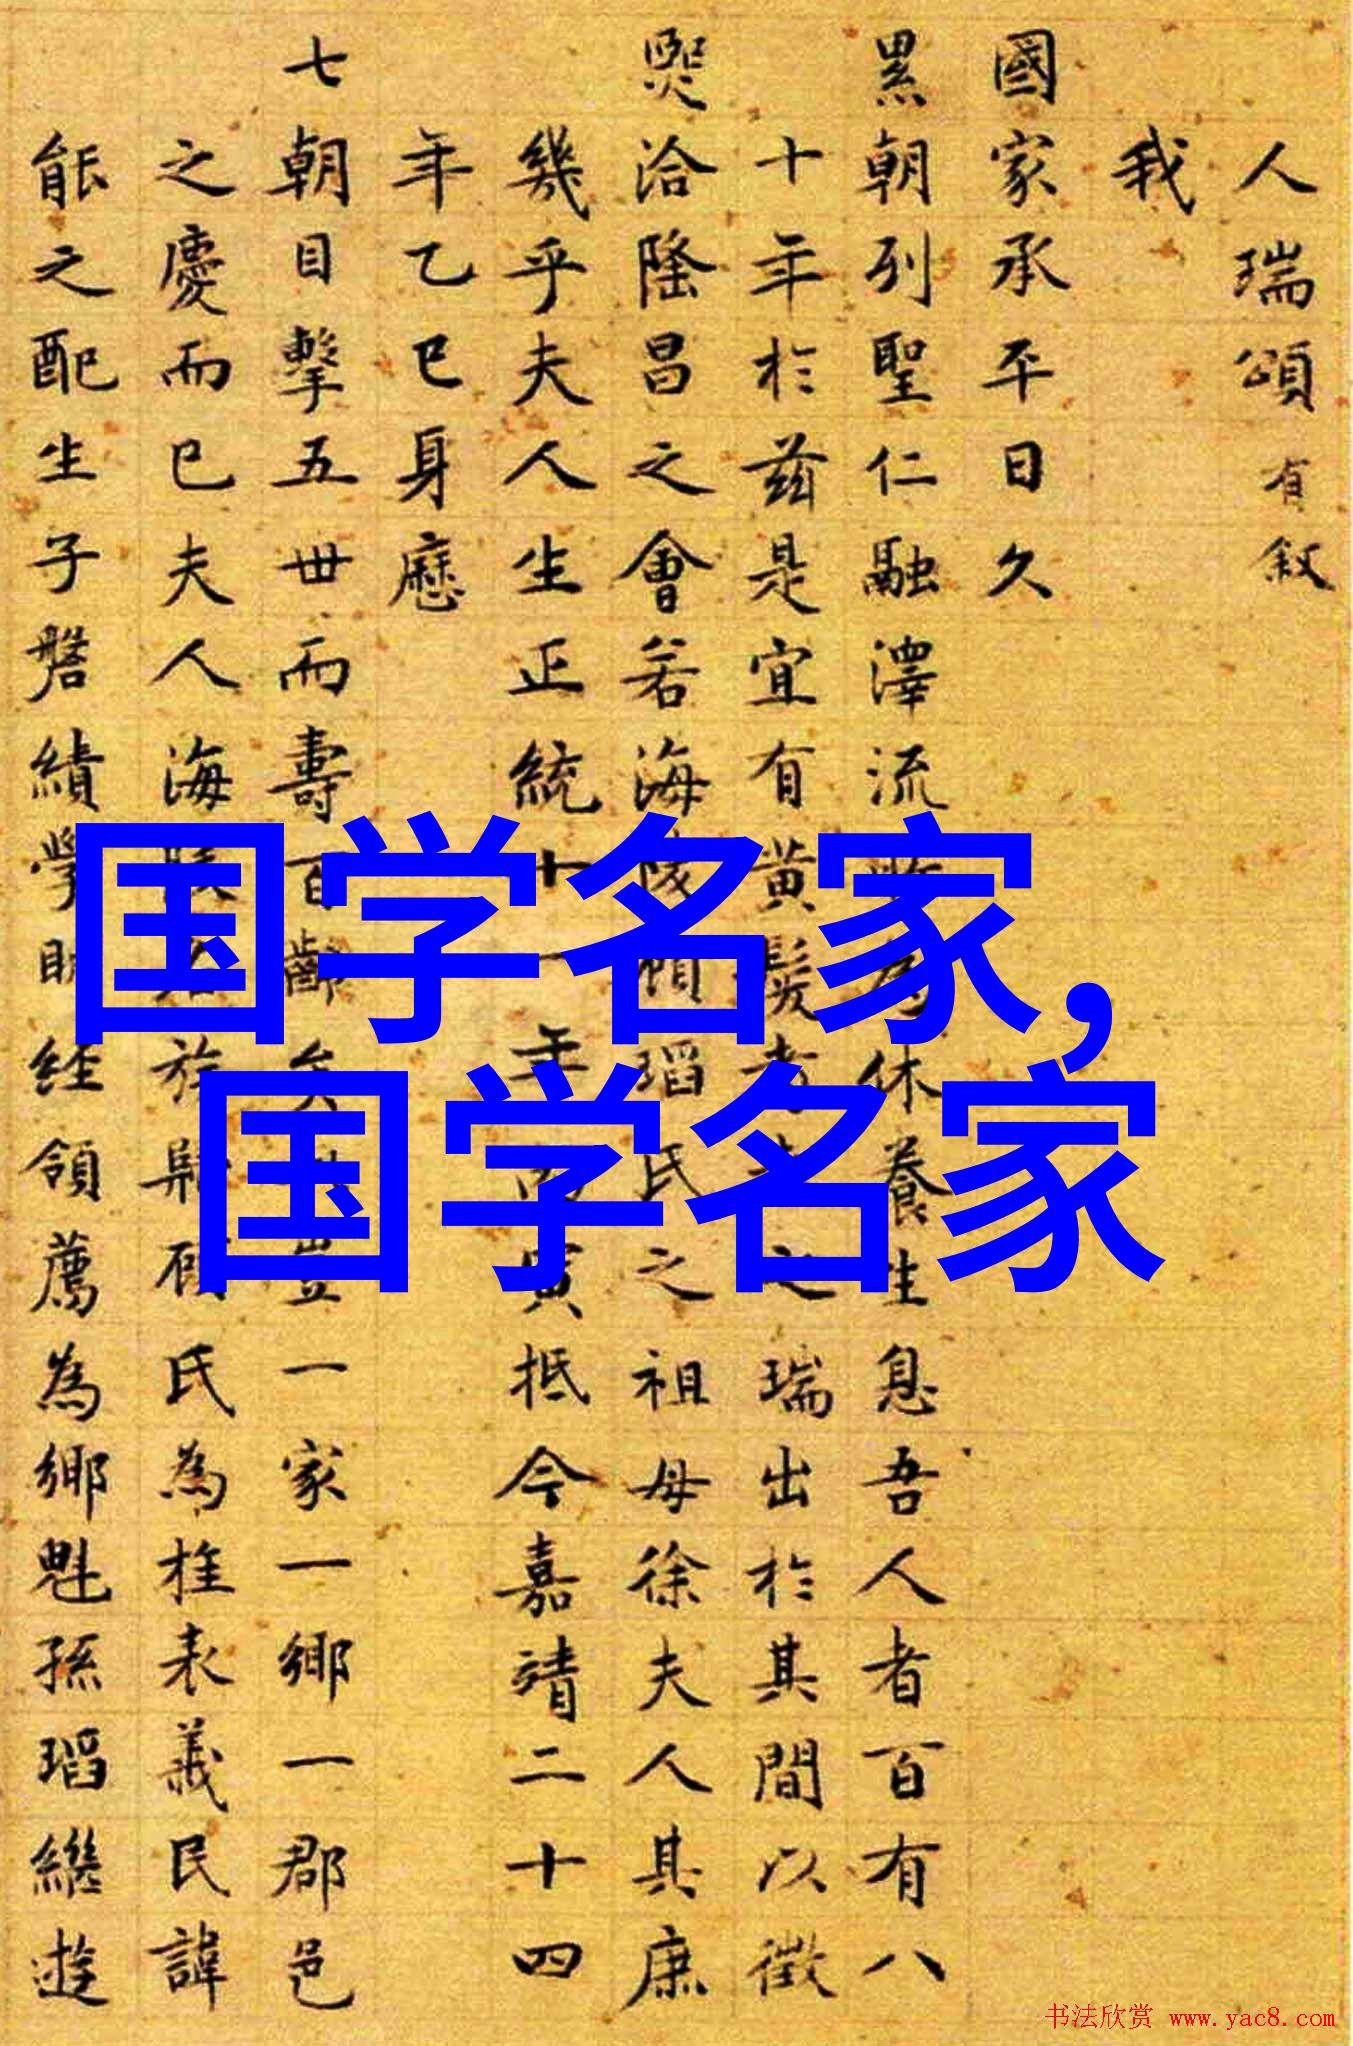 人瑞頌有敘
我
國家承平日久
累朝列聖仁融澤流休養生息吾人者百有八
十年於茲是宜有黃髮之瑞出於其間以徵
熙洽隆昌之會若海陵顧瑫氏之祖母徐夫人其庶
幾乎夫人生正統十一年寅抵今嘉靖二十四
年乙巳身歷
七朝目擊五世而壽百齡矣一家一鄉一郡邑
之慶而已夫人海陵族顧氏為桂表義民諱
能之配生子磐績學明經領薦為鄉魁孫瑫繼遊
国学名家，
国学名家
书法欣赏 www.yac8.com